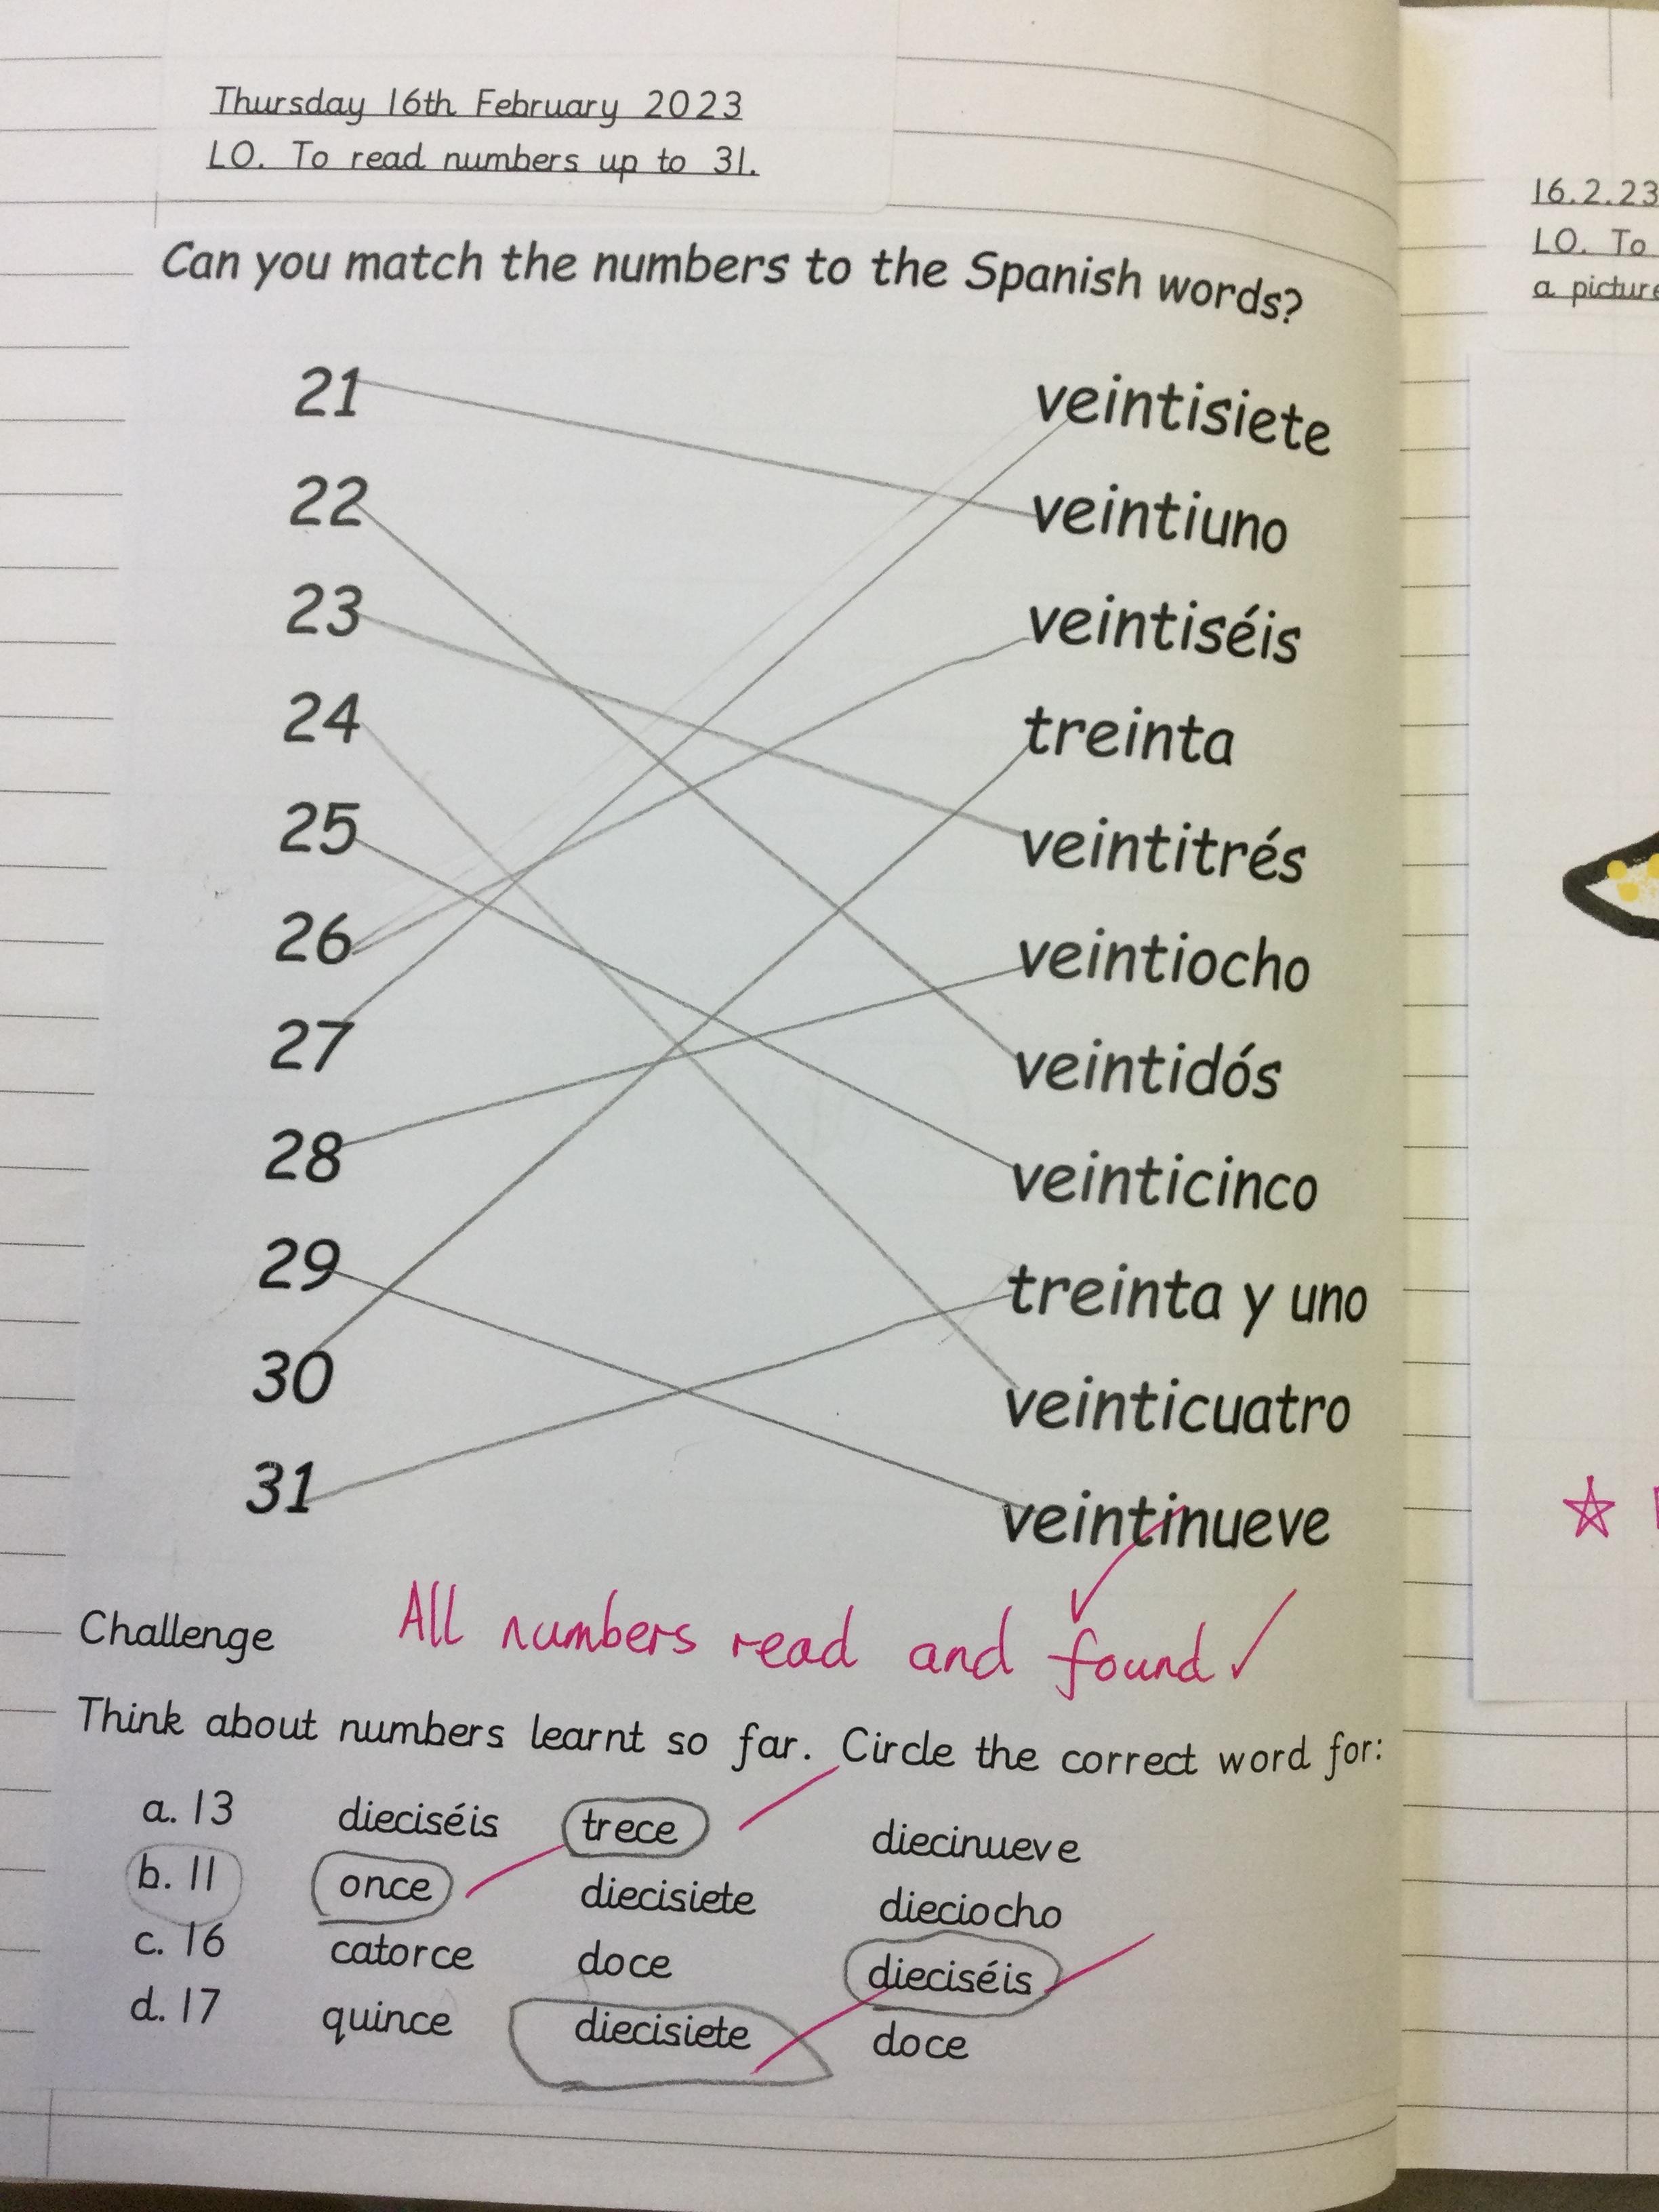 Thursday 16th February 2023
LO. To read numbers up to 31.
Can you match the numbers to the Spanish words?
21 veintisiete
22 veintiuno
23 veintiséis
24 treinta
25 veintitrés
26 veintiocho
27 veintidós
28 veinticinco
29 treinta y uno
30 veinticuatro
31 veintinueve
Challenge All numbers read and found ✓
Think about numbers learnt so far. Circle the correct word for:
a. 13 dieciséis trece diecinueve
b. 11 once diecisiete dieciocho
c. 16 catorce doce dieciséis
d. 17 quince diecisiete doce
16.2.23
LO. To
a picture